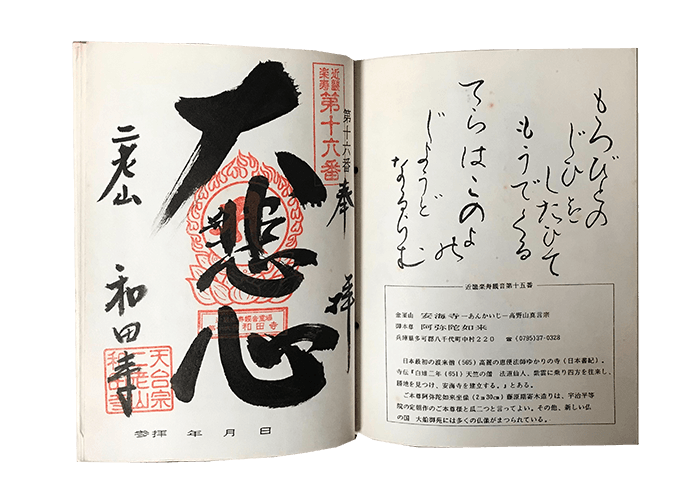 もろびとの
じひを
したひて
もうでくる
てらはこのよの
じょうど
なるらむ
近畿楽寿観音第十五番
金蔵山 安海寺-あんかいじ-高野山真言宗
御本尊 阿弥陀如来
兵庫県多可郡八千代町中村220 ☎(0795)37-0328
日本最初の渡来僧(565)高麗の恵便法師ゆかりの寺(日本書紀)。
寺伝「白雉二年(651)天竺の僧 法道仙人、紫雲に乗り四方を往来し、
勝地を見つけ、安海寺を建立する。」とある。
ご本尊阿弥陀如来坐像(2m30cm)藤原期寄木造りは、宇治平等
院の定朝作のご本尊様と瓜二つと言ってよい。その他、新しい仏
の国 大船御苑には多くの仏像がまつられている。
近畿
楽寿
第十六番
第十六番
奉拝
大悲心
和田寺
二老山
和田寺
天台宗
二老山
和田寺
参拝 年 月 日